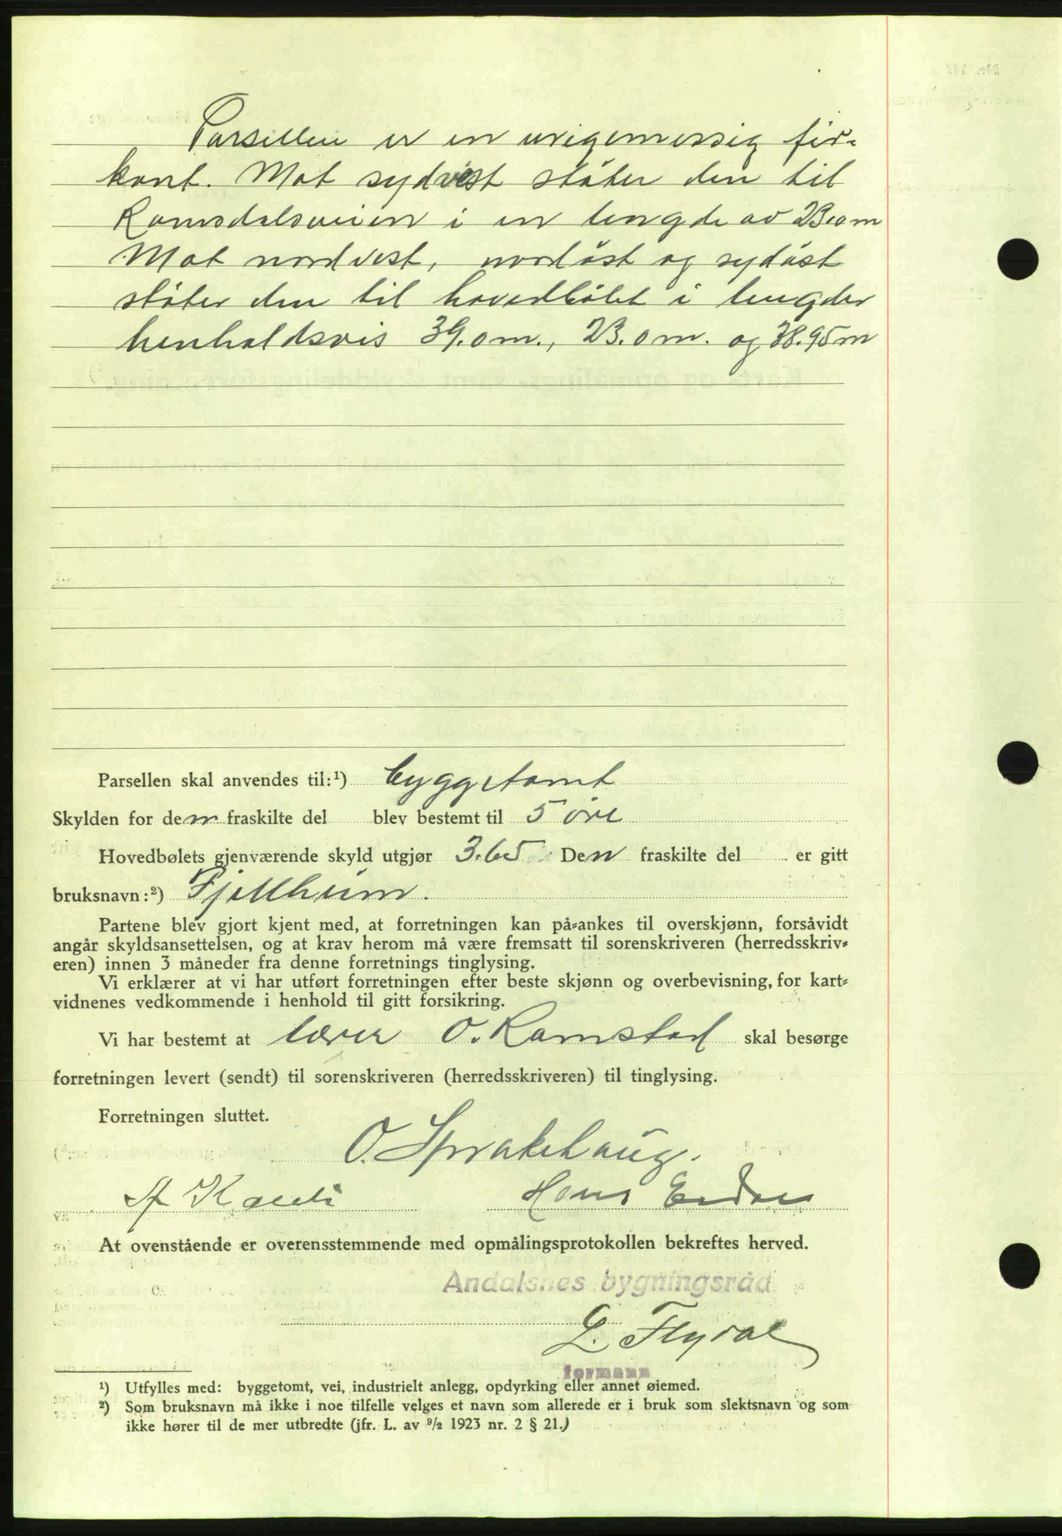 Parsellen er en uregemessig fir-
kant. Mot sydvest støter den til
Romsdalsveien i en lengde av 23.0 m
Mot nordvest, nordøst og sydøst
støter den til hovedbølet i lengder
henholdsvis 39.0 m., 23.0 m. og 38.95 m
Parsellen skal anvendes til:¹) byggetomt
Skylden for den fraskilte del blev bestemt til 5 øre
Hovedbølets gjenværende skyld utgjør 3.65 Den fraskilte del er gitt
bruksnavn:²) Fjellheim.
Partene blev gjort kjent med, at forretningen kan på-ankes til overskjønn, forsåvidt
angår skyldsansettelsen, og at krav herom må være fremsatt til sorenskriveren (herredsskriv-
eren) innen 3 måneder fra denne forretnings tinglysing.
Vi erklærer at vi har utført forretningen efter beste skjønn og overbevisning, for kart-
vidnenes vedkommende i henhold til gitt forsikring.
Vi har bestemt at lærer O. Ramstad skal besørge
forretningen levert (sendt) til sorenskriveren (herredsskriveren) til tinglysing.
Forretningen sluttet.
O. Sprakehaug.
Hans
At ovenstående er overensstemmende med opmålingsprotokollen bekreftes herved.
Andalsnes bygningsråd
L. Flydal
formann
¹) Utfylles med: byggetomt, vei, industrielt anlegg, opdyrking eller annet øiemed.
²) Som bruksnavn må ikke i noe tilfelle velges et navn som allerede er i bruk som slektsnavn og som
ikke hører til de mer utbredte (jfr. L. av 9/2 1923 nr. 2 § 21.)